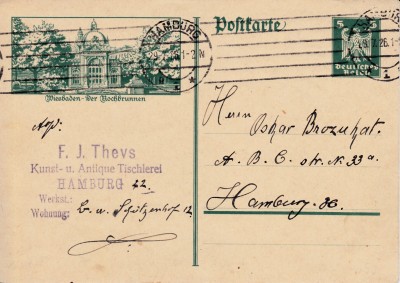 Postkarte
HAMBURG
5 5
Deutsches
Reich
Wiesbaden-Der Kochbrunnen
Abs:
F. J. Thevs
Kunst- u. Antique Tischlerei
HAMBURG 22.
Werkst.:
Wohnung: b. a. Schützenhof 12
Herrn
Oskar
A. B. C. str. N 33a.
Hamburg. 36.